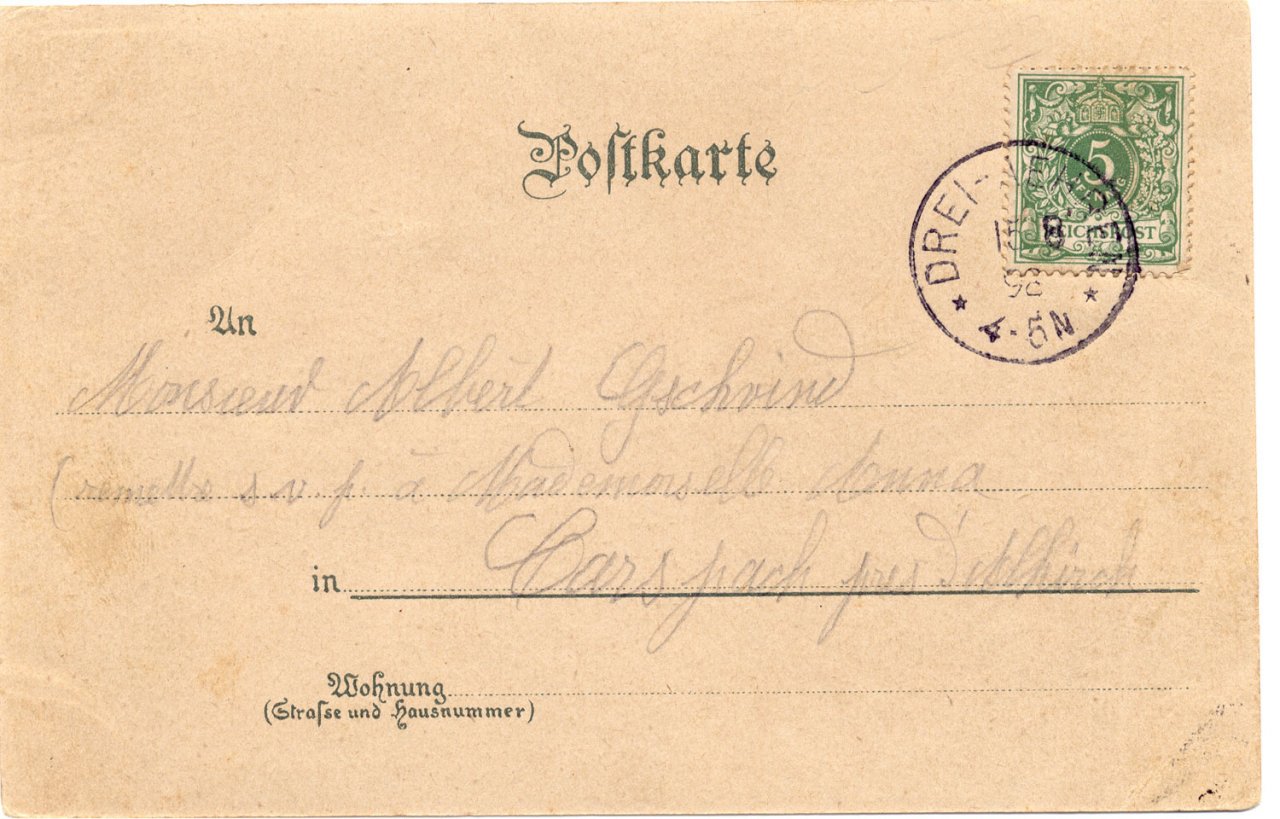 Postkarte
5
PFENNIG
REICHSPOST
DREI-AEHREN
15 8
98
4-5N
An
Monsieur Albert Gschwind
(remettre s. v. p. à Mademoiselle Anna
in Carspach près d'Altkirch
Wohnung
(Straſse und Hausnummer)